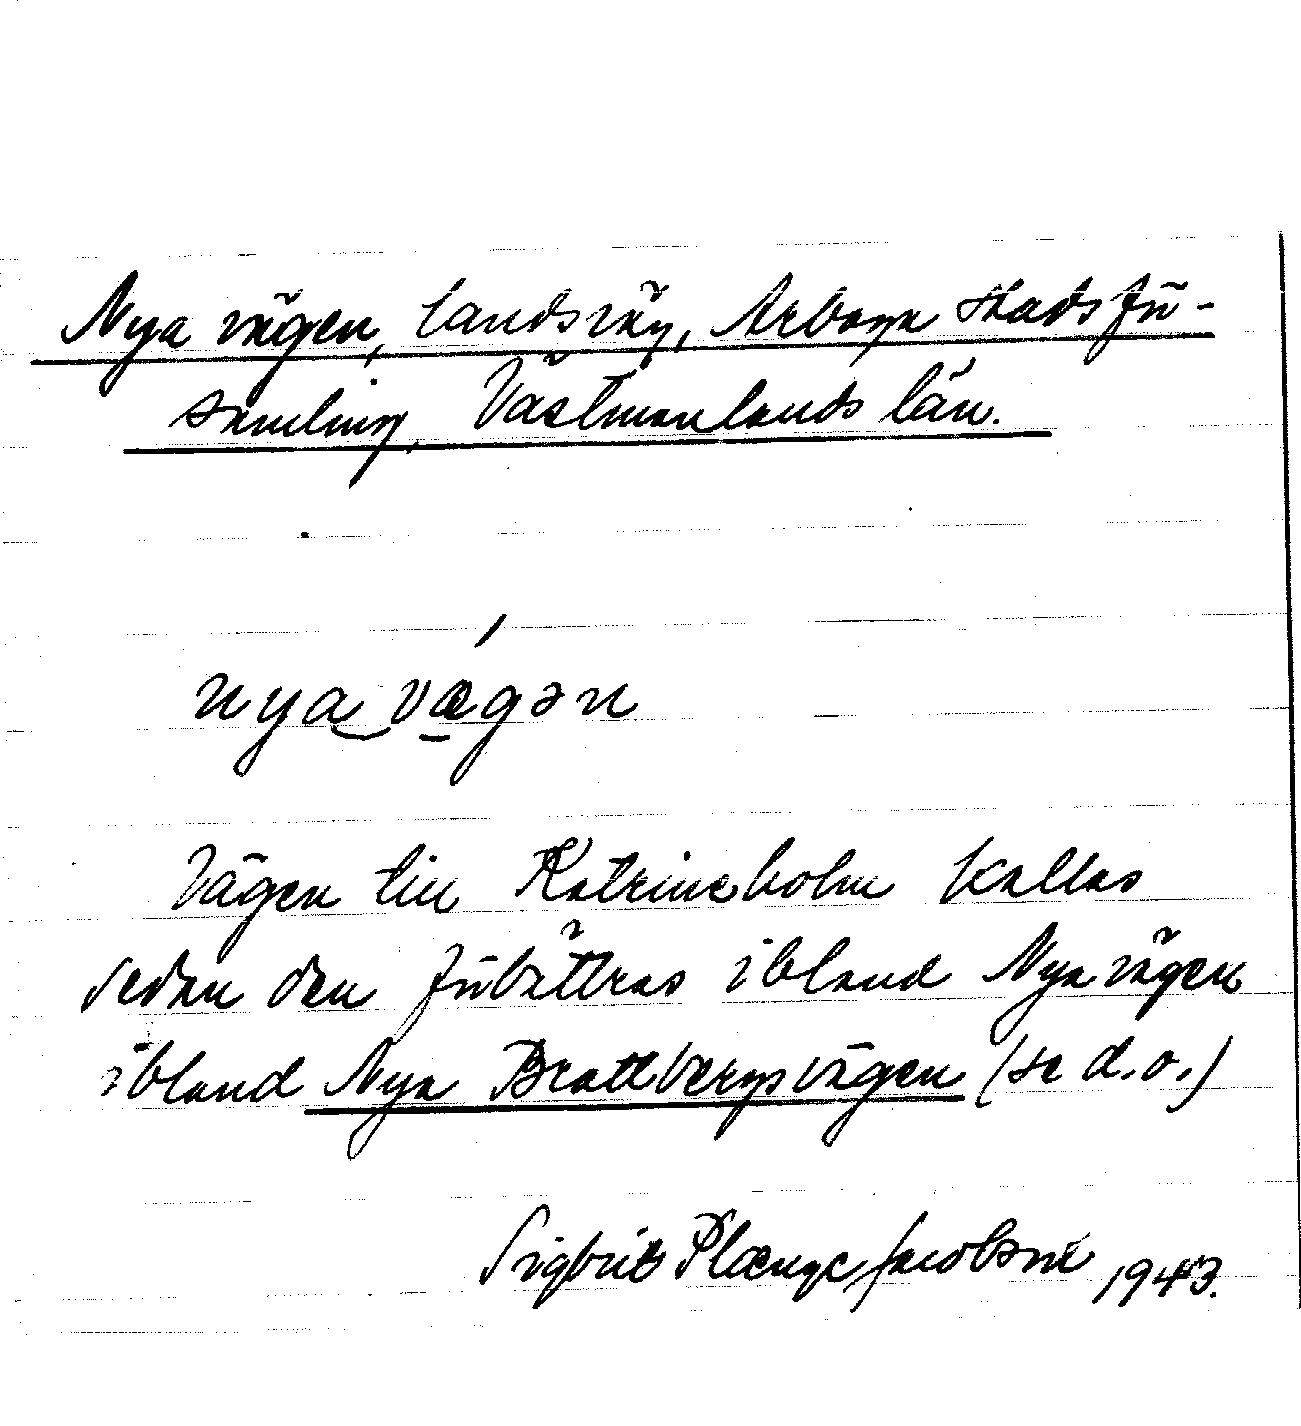 Nya vägen, landsväg, Arboga stadsför-
samling, Västmanlands län.
nya vægən
Vägen till Katrineholm kallas
sedan den förbättras ibland Nya vägen
ibland Nya Brattbergsvägen (se d.o.)
Sigbrit Plænge Jacobson 1943.